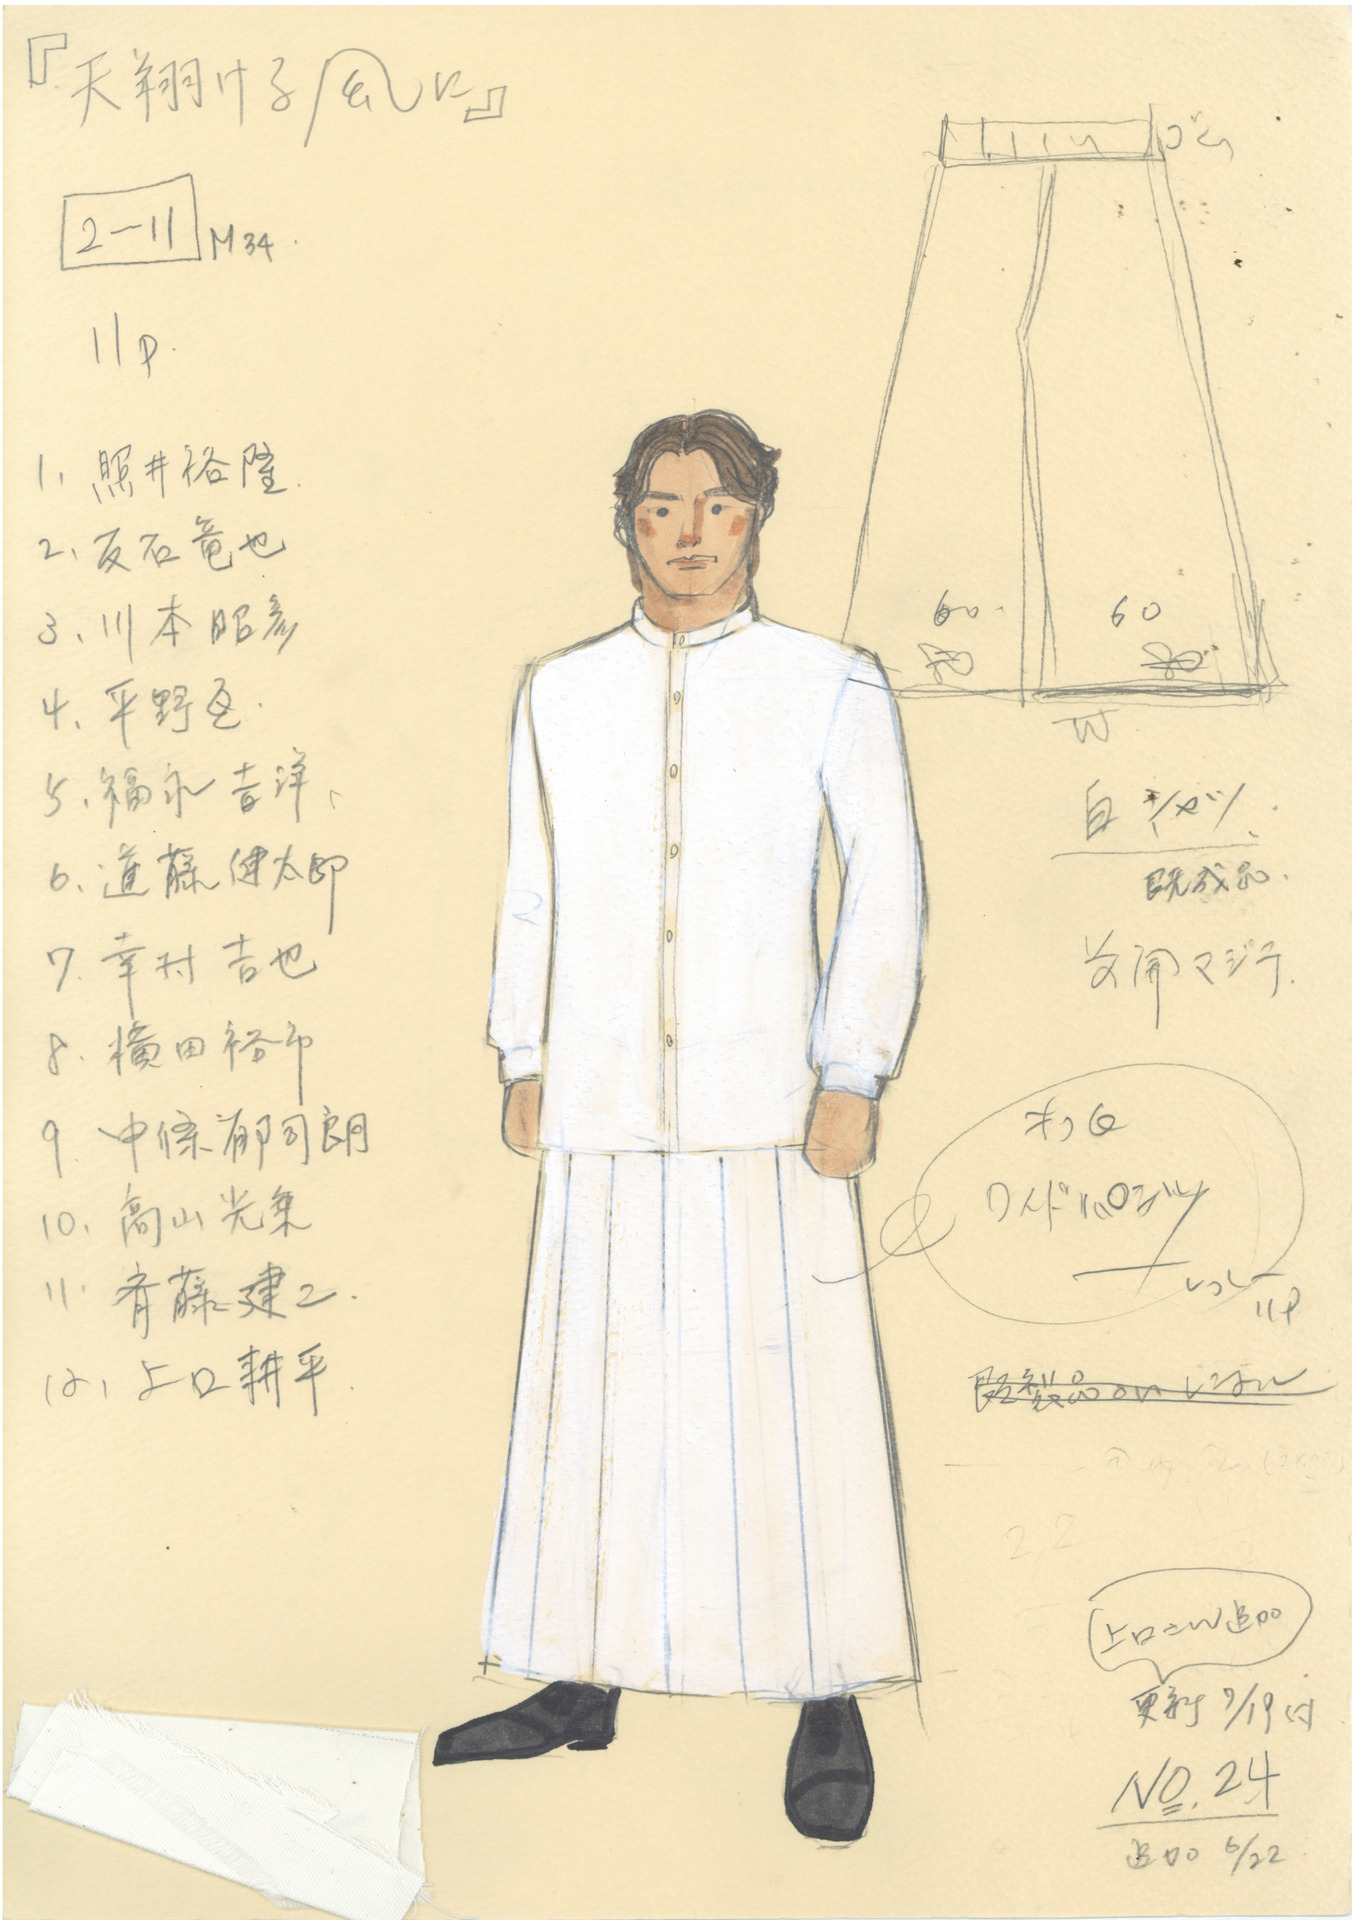 『天翔ける風に』
2-11 M34.
11P.
1. 照井裕隆.
2. 友石竜也
3. 川本昭彦
4. 平野亙.
5. 福永吉洋.
6. 進藤健太郎
7. 幸村吉也
8. 横田裕市
9. 中條郁司朗
10. 高山光乗
11. 斉藤建二.
12. 上口耕平.
ゴム
60. 60
W
白シャツ.
既成品.
前開マジテ.
オフ白
ワイドパンツ
11P
上口さん追加
更新 7/19付
NO. 24
追加 6/22